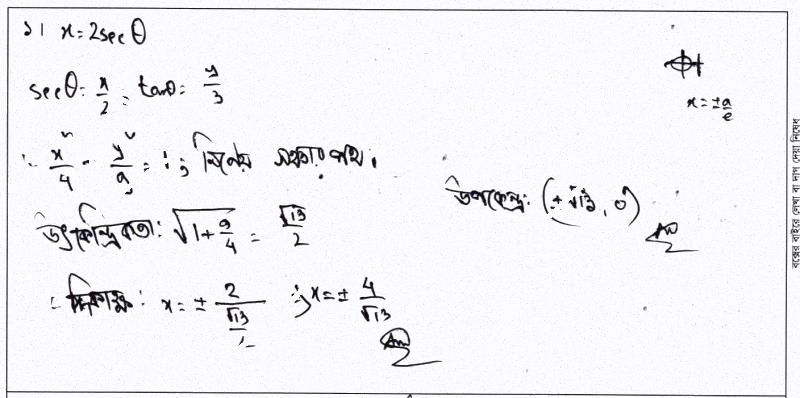 ১। x = 2secθ
secθ = x/2, tanθ = y/3
∴ x²/4 - y²/9 = 1 ; নির্ণেয় সঞ্চারপথ।
উৎকেন্দ্রিকতা: √(1 + 9/4) = √13/2
∴ : x = ± 2/(√13/2) ∴ x = ± 4/√13
Ans
x = ± a/e
উপকেন্দ্র: (± √13, 0)
Ans
বক্সের বাইরে লেখা বা দাগ দেয়া নিষেধ